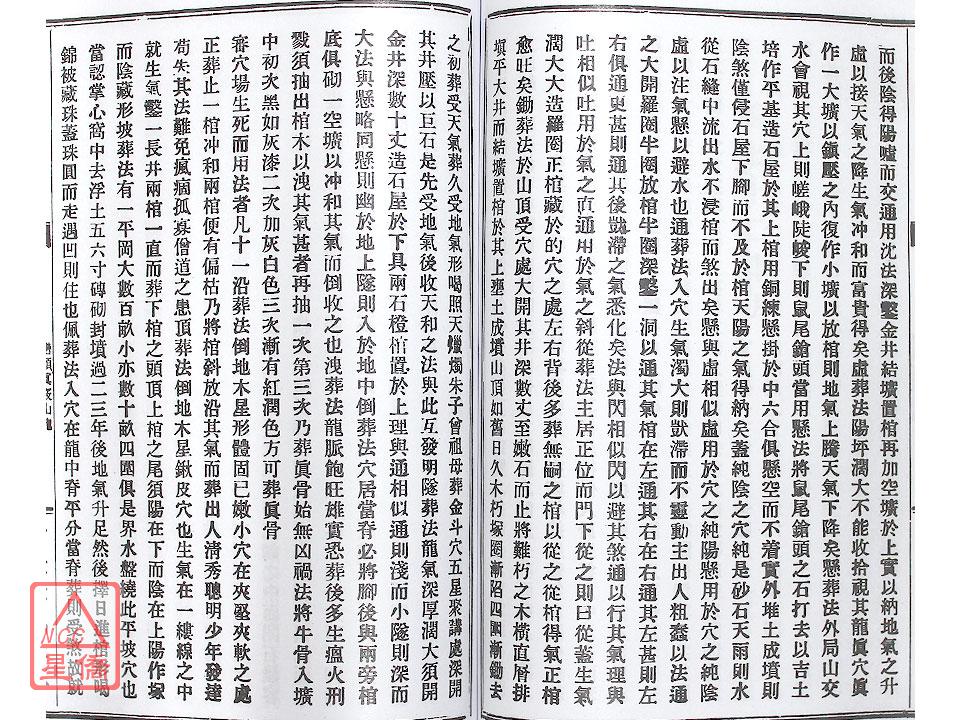 而後陰得陽噓而交通用沈法深鑿金井結壙置棺再加空壙於上實以納地氣之升
虛以接天氣之降生氣冲和而富貴得矣虛葬法陽坪濶大不能收拾視其龍眞穴眞
作一大壙以鎮壓之內復作小壙以放棺則地氣上騰天氣下降矣懸葬法外局山交
水會視其穴上則嵯峨陡峻下則鼠尾鎗頭當用懸法將鼠尾鎗頭之石打去以吉土
培作平基造石屋於其上棺用銅練懸掛於中六合俱懸空而不着實外堆土成墳則
陰煞僅侵石屋下腳而不及於棺天陽之氣得納矣蓋純陰之穴純是砂石天雨則水
從石縫中流出水不浸棺而煞出矣懸與虛相似虛用於穴之純陽懸用於穴之純陰
虛以注氣懸以避水也通葬法入穴生氣濁大則獃滯而不靈動主出人粗蠢以法通
之大開羅圈半圈放棺半圈深鑿一洞以通其氣棺在左通其右在右通其左甚則左
右俱通更甚則通其後獃滯之氣悉化矣法與閃相似閃以避其煞通以行其氣理與
吐相似吐用於氣之直通用於氣之斜從葬法主居正位而門下從之則曰從蓋生氣
濶大大造羅圈正棺藏於的穴之處左右背後多葬無嗣之棺以從之從棺得氣正棺
愈旺矣鋤葬法於山頂受穴處大開其井深數丈至嫩石而止將難朽之木橫直層排
塡平大井而結壙置棺於其上壅土成墳山頂如舊日久木朽塚圈漸陷四圍漸鋤去
之初葬受天氣葬久受地氣形喝照天蠟燭朱子曾祖母葬金斗穴五星聚講處深開
其井壓以巨石是先受地氣後收天和之法與此互發明隧葬法龍氣深厚濶大須開
金井深數十丈造石屋於下具兩石橙棺置於上理與通相似通則淺而小隧則深而
大法與懸略同懸則幽於地上隧則入於地中倒葬法穴居當脊必將腳後與兩旁棺
底俱砌一空壙以冲和其氣而倒收之也洩葬法龍脈飽旺雄實恐葬後多生瘟火刑
戮須抽出棺木以洩其氣甚者再抽一次第三次乃葬眞骨始無凶禍法將牛骨入壙
中初次黑如灰漆二次加灰白色三次漸有紅潤色方可葬眞骨
審穴場生死而用法者凡十一沿葬法倒地木星形體固已嫩小穴在夾堅夾軟之處
正葬止一棺冲和兩棺便有偏枯乃將棺斜放沿其氣而葬出人清秀聰明少年發達
苟失其法難免瘋痼孤寡僧道之患頂葬法倒地木星鍬皮穴也生氣在一縷線之中
就生氣鑿一長井兩棺一直而葬下棺之頭頂上棺之尾須陽在下而陰在上陽作塚
而陰藏形坡葬法有一平岡大數百畝小亦數十畝四圍俱是界水盤繞此平坡穴也
當認掌心窩中去浮土五六寸磚砌封墳過二三年後地氣升足然後擇日進棺形喝
錦被藏珠蓋珠圓而走遇凹則住也佩葬法入穴在龍中脊平分當脊葬則受煞
NCC
星僑